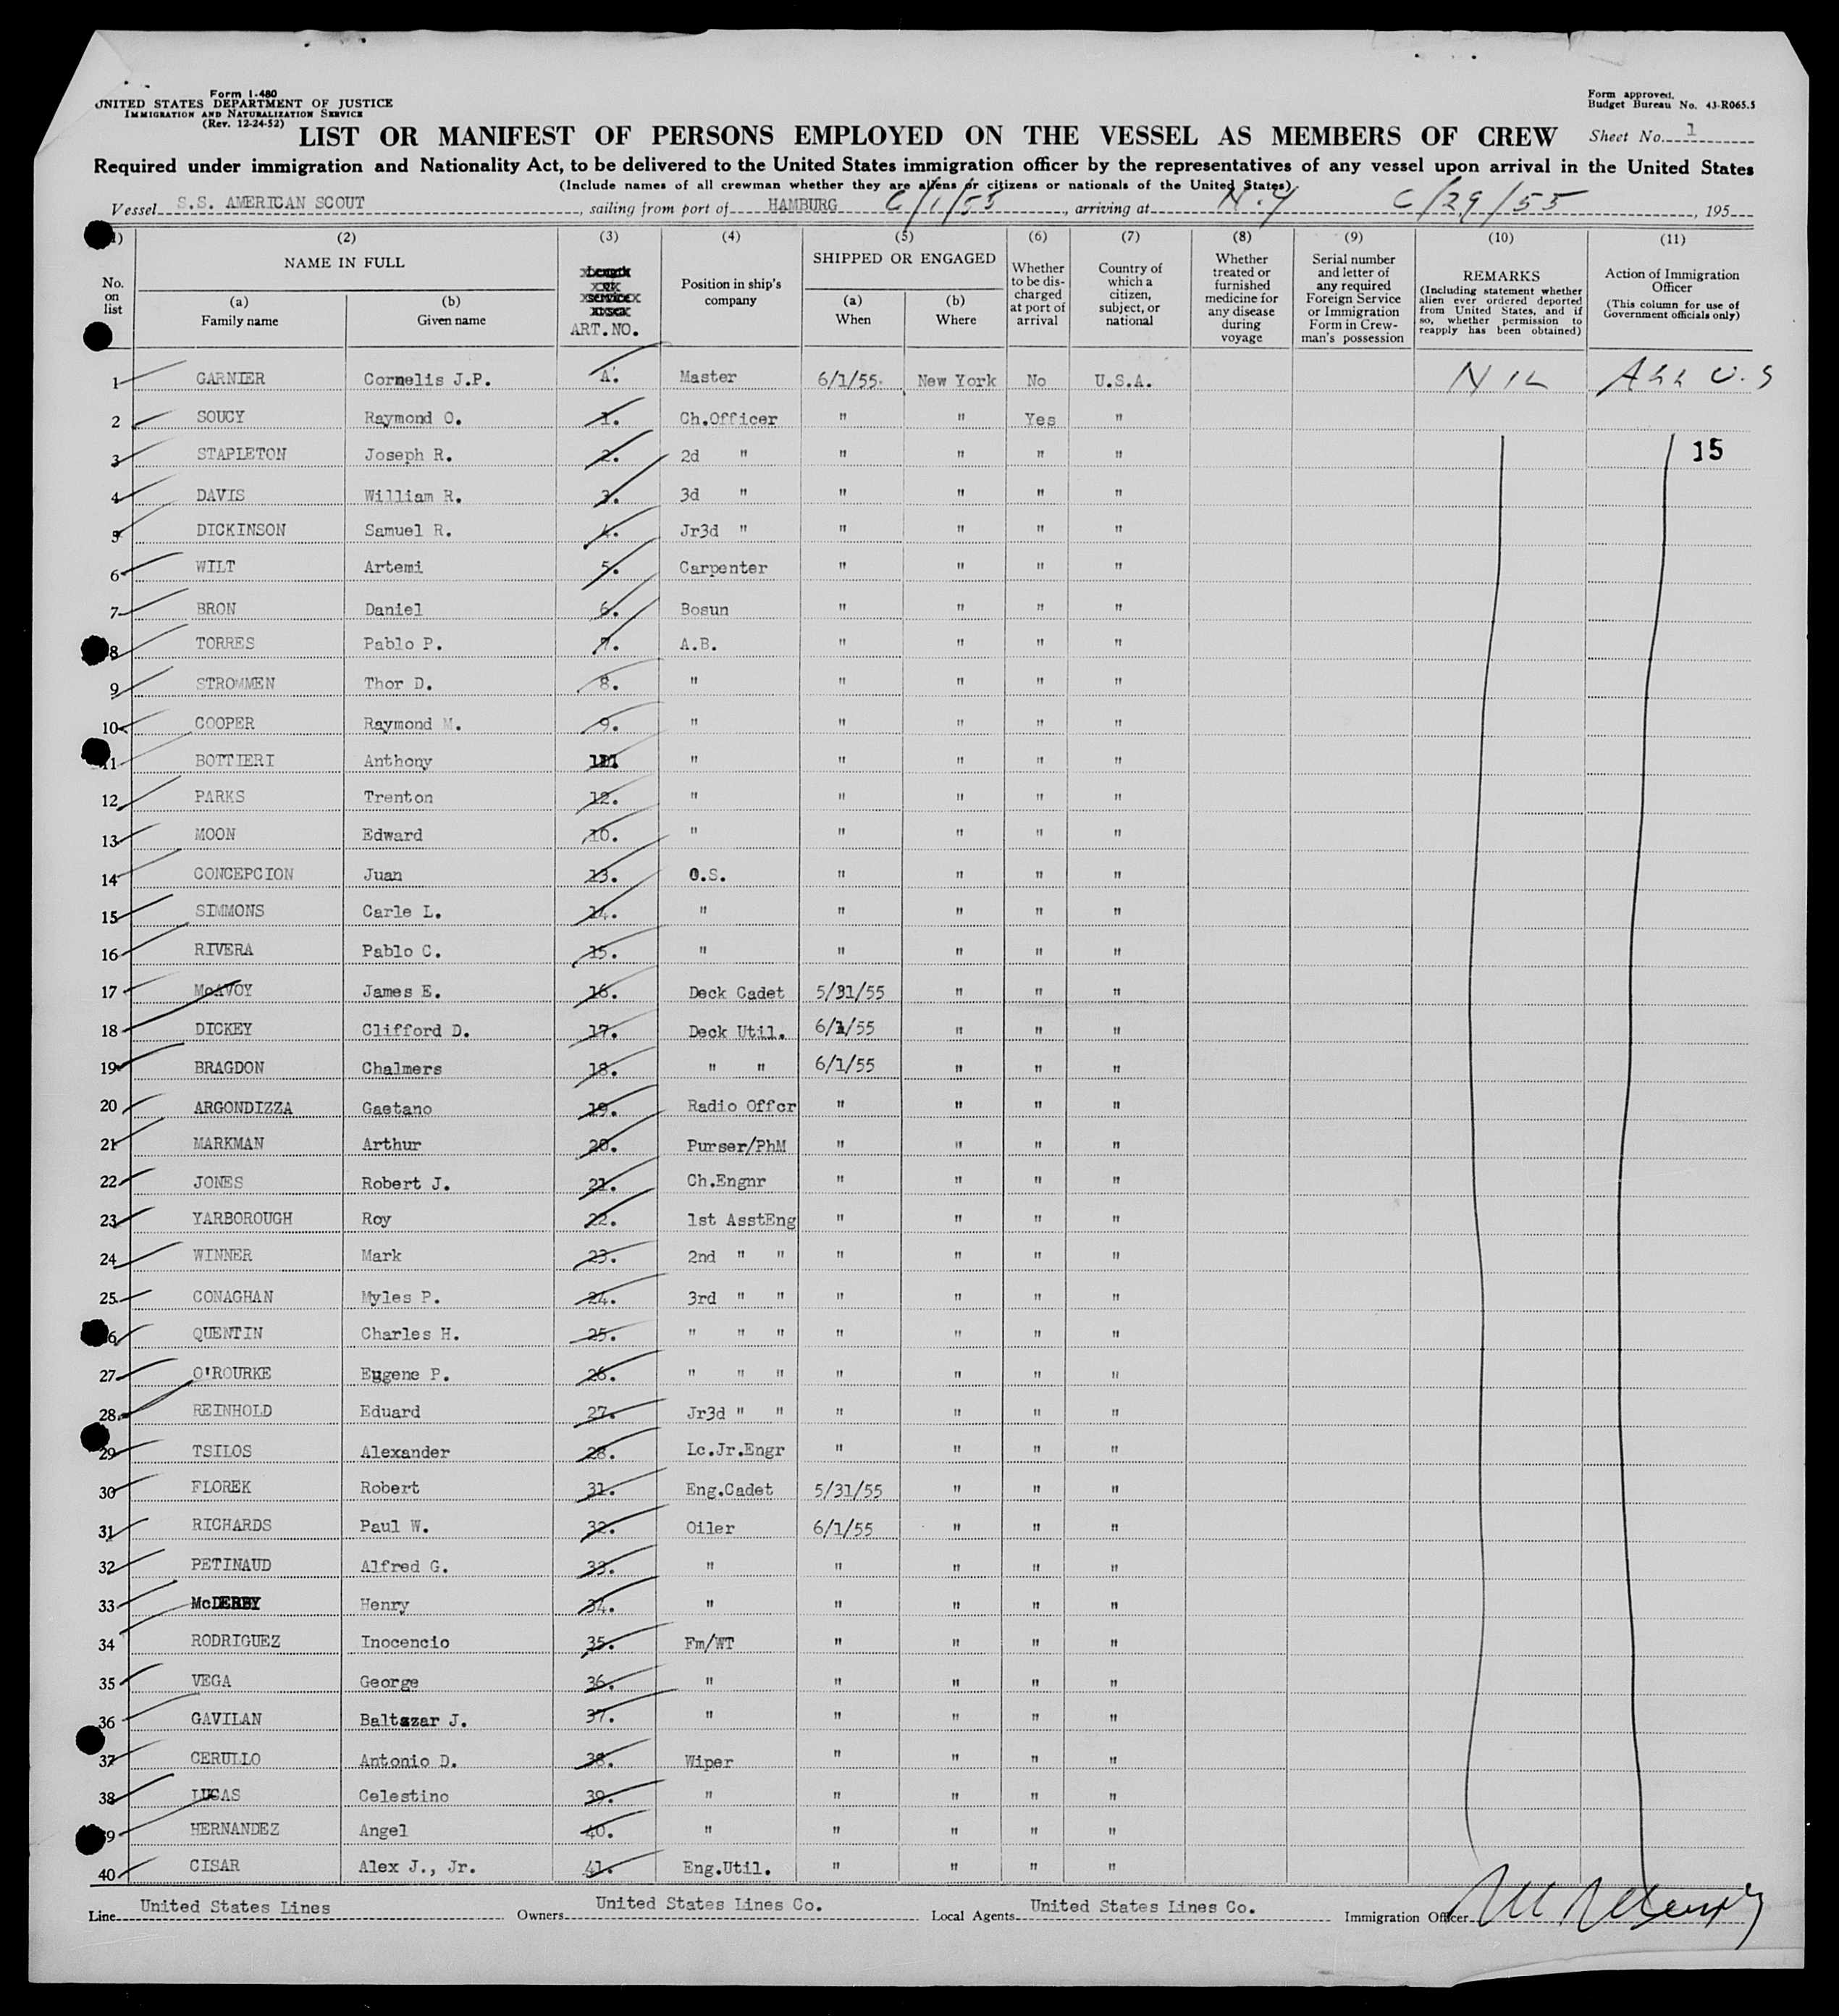 Form I-480
UNITED STATES DEPARTMENT OF JUSTICE
IMMIGRATION AND NATURALIZATION SERVICE
(Rev. 12-24-52)
Form approved.
Budget Bureau No. 43-R065.5
LIST OR MANIFEST OF PERSONS EMPLOYED ON THE VESSEL AS MEMBERS OF CREW
Sheet No. 1
Required under immigration and Nationality Act, to be delivered to the United States immigration officer by the representatives of any vessel upon arrival in the United States
(Include names of all crewman whether they are aliens or citizens or nationals of the United States)
Vessel S.S. AMERICAN SCOUT, sailing from port of HAMBURG 6/1/55, arriving at N.Y 6/29/55, 195
(1) (2) (3) (4) (5) (6) (7) (8) (9) (10) (11)
No. on list
NAME IN FULL
(a) Family name
(b) Given name
ART.NO.
Position in ship's company
SHIPPED OR ENGAGED
(a) When
(b) Where
Whether to be discharged at port of arrival
Country of which a citizen, subject, or national
Whether treated or furnished medicine for any disease during voyage
Serial number and letter of any required Foreign Service or Immigration Form in Crewman's possession
REMARKS
(Including statement whether alien ever ordered deported from United States, and if so, whether permission to reapply has been obtained)
Action of Immigration Officer
(This column for use of Government officials only)
1 GARNIER Cornelis J.P. A. Master 6/1/55. New York No U.S.A. NIL ALL U.S
2 SOUCY Raymond O. 1. Ch.Officer " " Yes "
3 STAPLETON Joseph R. 2. 2d " " " " " 15
4 DAVIS William R. 3. 3d " " " " "
5 DICKINSON Samuel R. 4. Jr3d " " " " "
6 WILT Artemi 5. Carpenter " " " "
7 BRON Daniel 6. Bosun " " " "
8 TORRES Pablo P. 7. A.B. " " " "
9 STROMMEN Thor D. 8. " " " " "
10 COOPER Raymond M. 9. " " " " "
11 BOTTIERI Anthony 11. " " " " "
12 PARKS Trenton 12. " " " " "
13 MOON Edward 10. " " " " "
14 CONCEPCION Juan 13. O.S. " " " "
15 SIMMONS Carle L. 14. " " " " "
16 RIVERA Pablo C. 15. " " " " "
17 McAVOY James E. 16. Deck Cadet 5/31/55 " " "
18 DICKEY Clifford D. 17. Deck Util. 6/1/55 " " "
19 BRAGDON Chalmers 18. " " 6/1/55 " " "
20 ARGONDIZZA Gaetano 19. Radio Offcr " " " "
21 MARKMAN Arthur 20. Purser/PhM " " " "
22 JONES Robert J. 21. Ch.Engnr " " " "
23 YARBOROUGH Roy 22. 1st AsstEng " " " "
24 WINNER Mark 23. 2nd " " " " " "
25 CONAGHAN Myles P. 24. 3rd " " " " " "
26 QUENTIN Charles H. 25. " " " " " " "
27 O'ROURKE Eugene P. 26. " " " " " " "
28 REINHOLD Eduard 27. Jr3d " " " " " "
29 TSILOS Alexander 28. Lc.Jr.Engr " " " "
30 FLOREK Robert 31. Eng.Cadet 5/31/55 " " "
31 RICHARDS Paul W. 32. Oiler 6/1/55 " " "
32 PETINAUD Alfred G. 33. " " " " "
33 McDERBY Henry 34. " " " " "
34 RODRIGUEZ Inocencio 35. Fm/WT " " " "
35 VEGA George 36. " " " " "
36 GAVILAN Baltazar J. 37. " " " " "
37 CERULLO Antonio D. 38. Wiper " " " "
38 LUCAS Celestino 39. " " " " "
39 HERNANDEZ Angel 40. " " " " "
40 CISAR Alex J., Jr. 41. Eng.Util. " " " "
Line United States Lines Owners United States Lines Co. Local Agents United States Lines Co. Immigration Officer